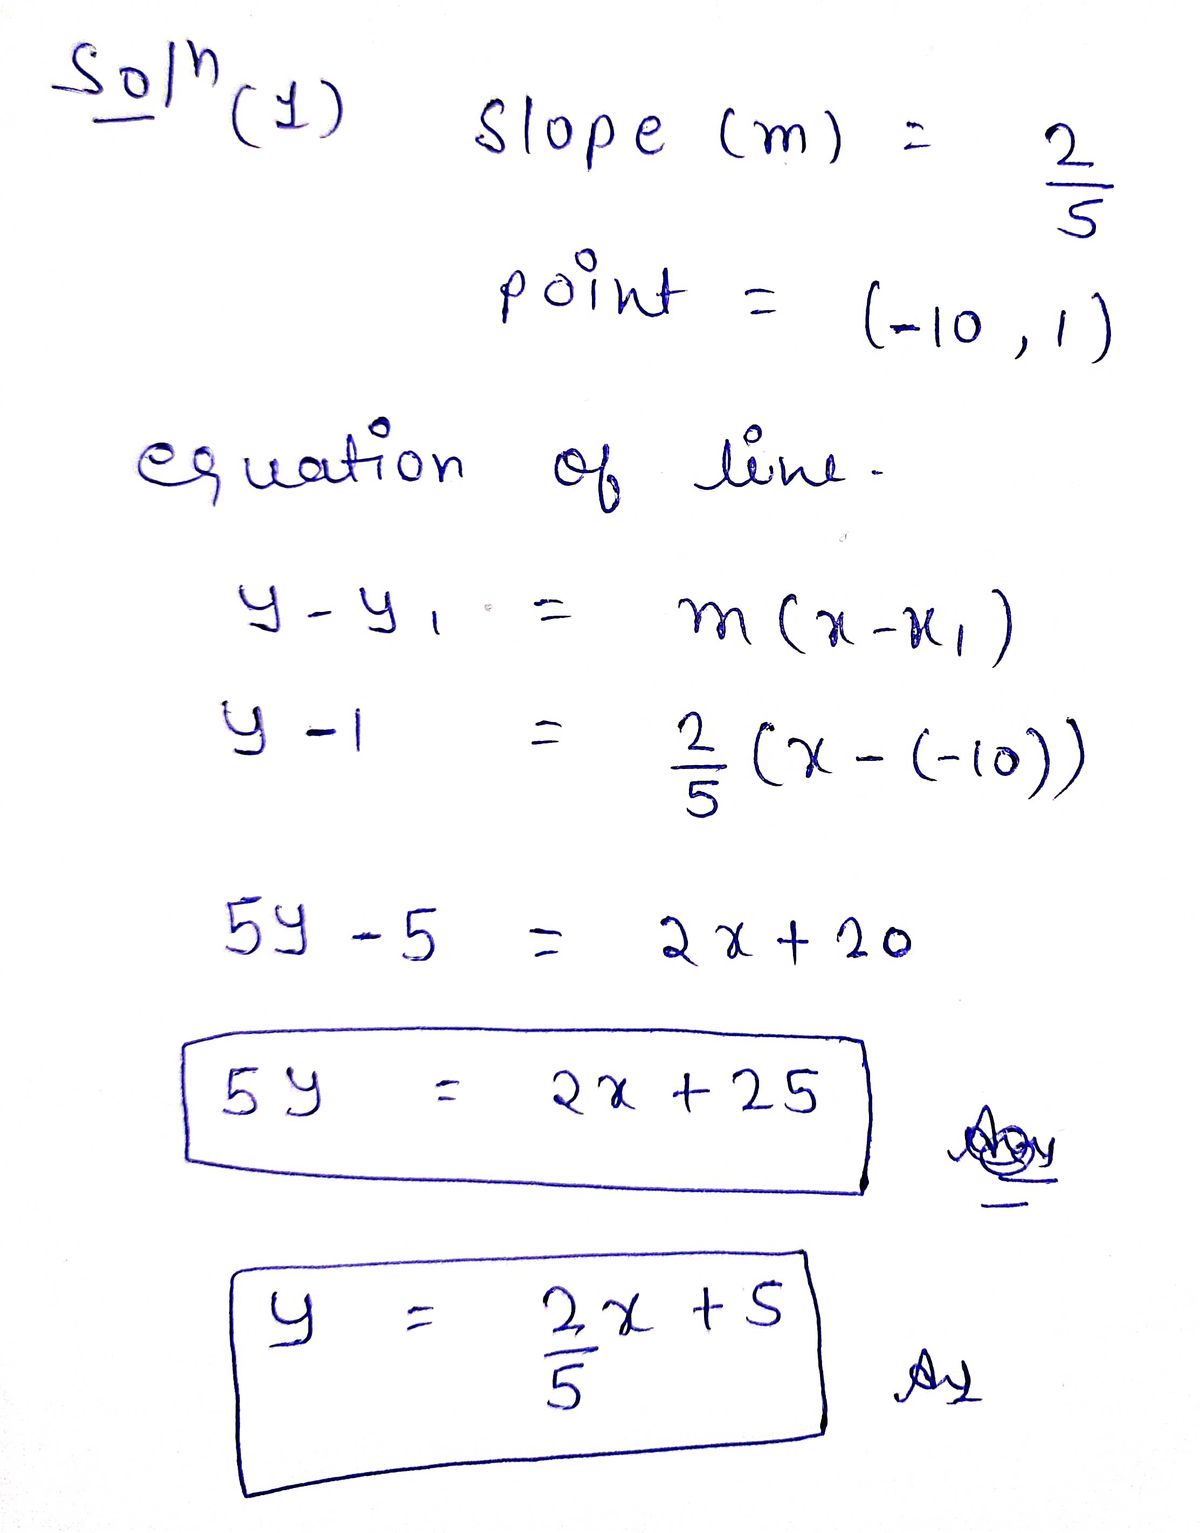 Solⁿ (1) Slope (m) = 2/5
point = (-10, 1)
equation of line -
y - y₁ = m(x - x₁)
y - 1 = 2/5 (x - (-10))
5y - 5 = 2x + 20
5y = 2x + 25
y = 2/5 x + 5